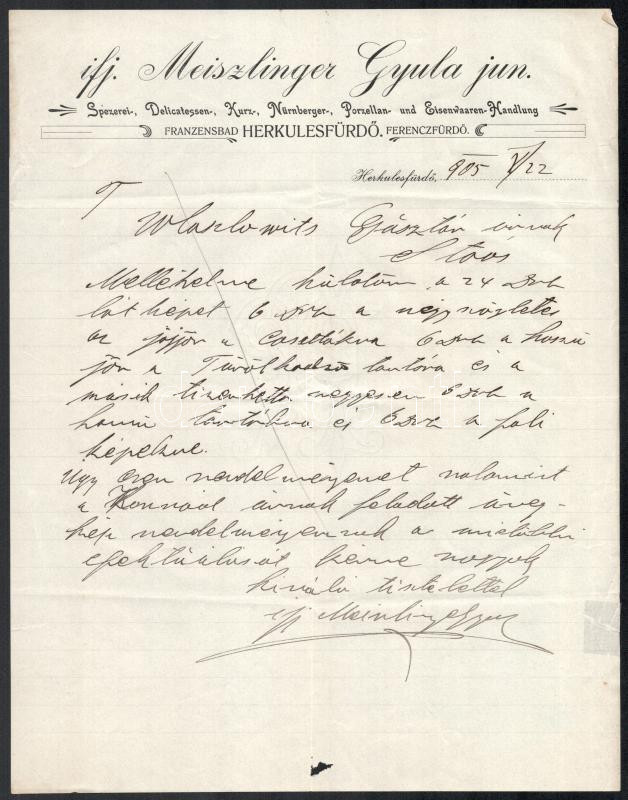 ifj. Meiszlinger Gyula jun.
Spezerei-, Delicatessen-, Kurz-, Nürnberger-, Porzellan- und Eisenwaaren-Handlung
FRANZENSBAD HERKULESFÜRDŐ. FERENCZFÜRDŐ.
Herkulesfürdő, 905 V/22
T
Wlaslowits Gusztáv úrnak
Stoós
Mellékelve küldöm a 24 Drb
látképet 6 Drb a négyszögletes
az jöjjön a casettákra 6 Drb a hosszú
jön a tartóra és a
másik tizenkettő negyesen 6 Drb a
hosszú tartókra és 6 Drb a fali
képekre.
Ugy ezen rendelményemet valamint
a úrnak feladott üveg-
kép rendelményemnek a mielőbbi
efektuálását kérve vagyok
kiváló tisztelettel
ifj Meiszlinger Gyula